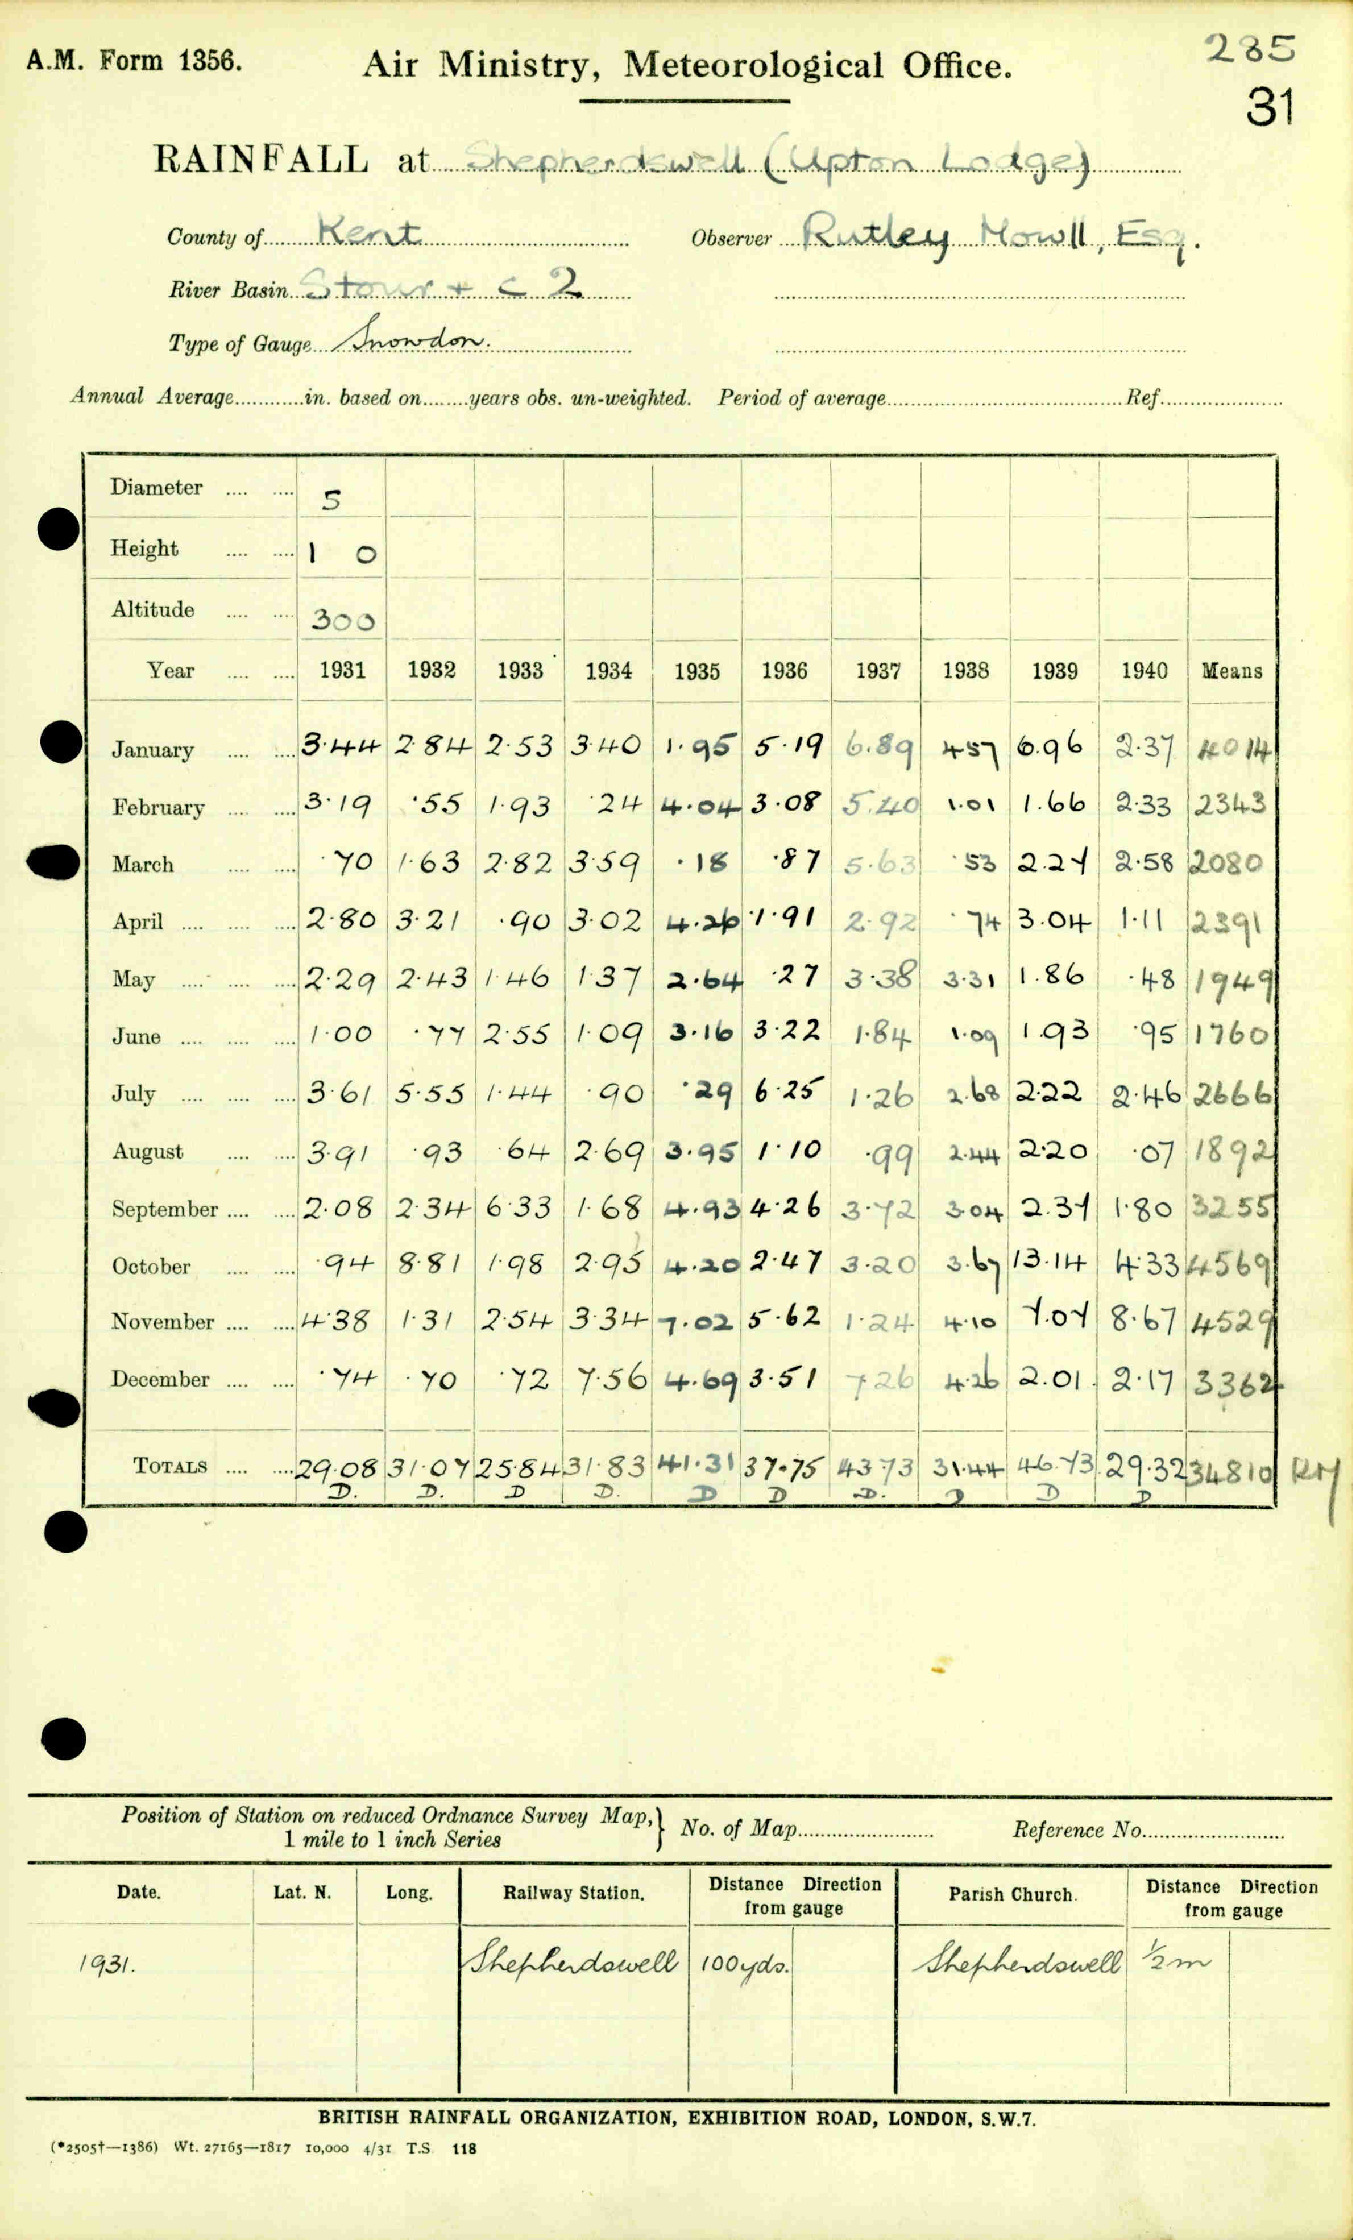 A.M. Form 1356.
Air Ministry, Meteorological Office.
285
31
RAINFALL at Shepherdswell (Upton Lodge)
County of Kent Observer Rutley Mowll, Esq.
River Basin Stour + C 2
Type of Gauge Snowdon.
Annual Average............in. based on........years obs. un-weighted. Period of average............ Ref............
Diameter .... .... 5
Height .... .... 1 0
Altitude .... .... 300
Year .... .... 1931 1932 1933 1934 1935 1936 1937 1938 1939 1940 Means
January .... .... 3·44 2·84 2·53 3·40 1·95 5·19 6·89 4·57 6·96 2·37 4014
February .... .... 3·19 ·55 1·93 ·24 4·04 3·08 5·40 1·01 1·66 2·33 2343
March .... .... ·70 1·63 2·82 3·59 ·18 ·87 5·63 ·53 2·27 2·58 2080
April .... .... .... 2·80 3·21 ·90 3·02 4·26 1·91 2·92 ·74 3·04 1·11 2391
May .... .... .... 2·29 2·43 1·46 1·37 2·64 ·27 3·38 3·31 1·86 ·48 1949
June .... .... .... 1·00 ·77 2·55 1·09 3·16 3·22 1·84 1·09 1·93 ·95 1760
July .... .... .... 3·61 5·55 1·44 ·90 ·29 6·25 1·26 2·68 2·22 2·46 2666
August .... .... 3·91 ·93 ·64 2·69 3·95 1·10 ·99 2·44 2·20 ·07 1892
September .... .... 2·08 2·34 6·33 1·68 4·93 4·26 3·72 3·04 2·37 1·80 3255
October .... .... ·94 8·81 1·98 2·95 4·20 2·47 3·20 3·67 13·14 4·33 4569
November .... .... 4·38 1·31 2·54 3·34 7·02 5·62 1·24 4·10 7·07 8·67 4529
December .... .... ·74 ·70 ·72 7·56 4·69 3·51 7·26 4·26 2·01 2·17 3362
TOTALS .... .... 29·08 31·07 25·84 31·83 41·31 37·75 43·73 31·44 46·73 29·32 34810 RM
D. D. D D. D D D. D D D
Position of Station on reduced Ordnance Survey Map, } No. of Map............ Reference No............
1 mile to 1 inch Series
Date. Lat. N. Long. Railway Station. Distance Direction from gauge Parish Church. Distance Direction from gauge
1931. Shepherdswell 100 yds. Shepherdswell ½ m
BRITISH RAINFALL ORGANIZATION, EXHIBITION ROAD, LONDON, S.W.7.
(*2505†—1386) Wt. 27165—1817 10,000 4/31 T.S 118